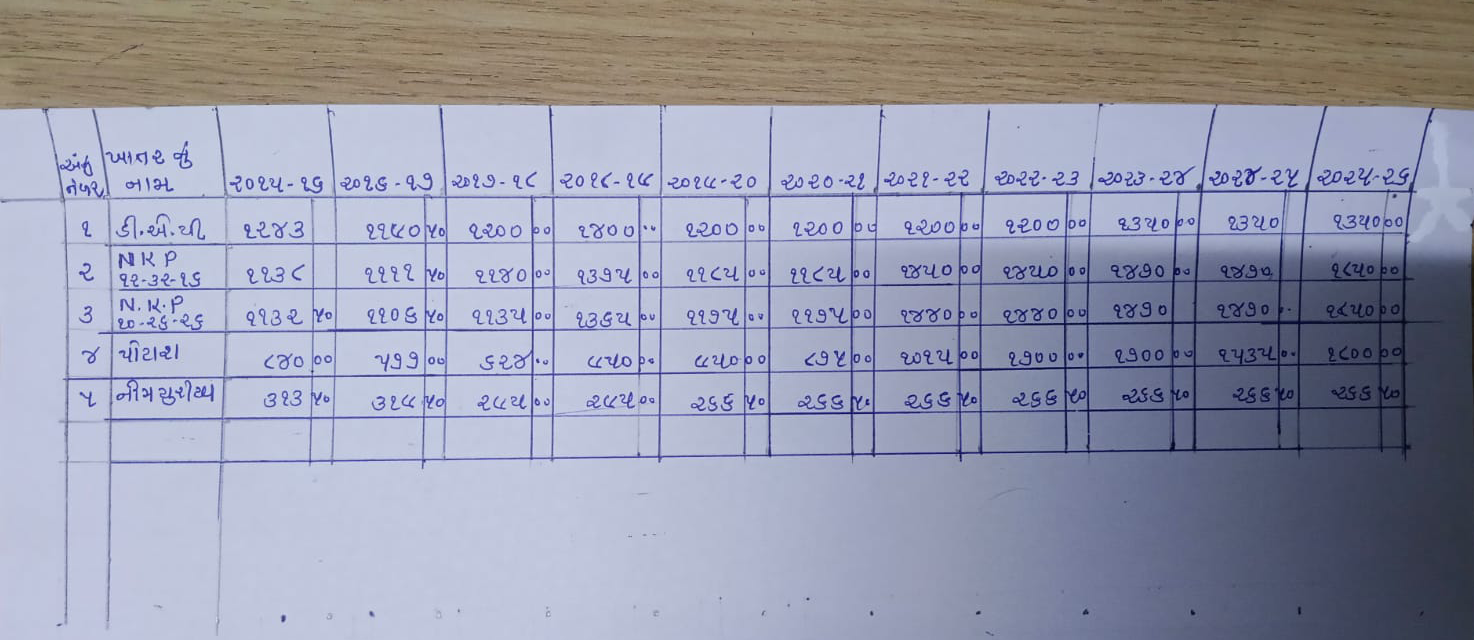 અનુ ખાતર નું
નંબર નામ ૨૦૧૫-૧૬ ૨૦૧૬-૧૭ ૨૦૧૭-૧૮ ૨૦૧૮-૧૯ ૨૦૧૯-૨૦ ૨૦૨૦-૨૧ ૨૦૨૧-૨૨ ૨૦૨૨-૨૩ ૨૦૨૩-૨૪ ૨૦૨૪-૨૫ ૨૦૨૫-૨૬
૧ ડી.એ.પી ૧૨૪૩ ૧૧૯૦ ૫૦ ૧૨૦૦ ૦૦ ૧૪૦૦ ૦૦ ૧૨૦૦ ૦૦ ૧૨૦૦ ૦૦ ૧૨૦૦ ૦૦ ૧૨૦૦ ૦૦ ૧૩૫૦ ૦૦ ૧૩૫૦ ૧૩૫૦ ૦૦
૨ NKP
૧૨-૩૨-૧૬ ૧૧૩૮ ૧૧૧૧ ૫૦ ૧૧૪૦ ૦૦ ૧૩૭૫ ૦૦ ૧૧૮૫ ૦૦ ૧૧૮૫ ૦૦ ૧૪૫૦ ૦૦ ૧૪૫૦ ૦૦ ૧૪૭૦ ૦૦ ૧૪૭૦ ૧૮૫૦ ૦૦
૩ N.K.P
૧૦-૨૬-૨૬ ૧૧૩૨ ૫૦ ૧૧૦૬ ૫૦ ૧૧૩૫ ૦૦ ૧૩૬૫ ૦૦ ૧૧૭૫ ૦૦ ૧૧૭૫ ૦૦ ૧૪૪૦ ૦૦ ૧૪૪૦ ૦૦ ૧૪૭૦ ૧૪૭૦ ૦૦ ૧૮૫૦ ૦૦
૪ પોટાશ ૮૪૦ ૦૦ ૫૭૭ ૦૦ ૬૨૪ ૦૦ ૯૫૦ ૦૦ ૯૫૦ ૦૦ ૮૭૫ ૦૦ ૧૦૧૫ ૦૦ ૧૭૦૦ ૦૦ ૧૭૦૦ ૦૦ ૧૫૩૫ ૦૦ ૧૮૦૦ ૦૦
૫ નીમ યુરીયા ૩૧૩ ૫૦ ૩૧૯ ૫૦ ૨૯૫ ૦૦ ૨૯૫ ૦૦ ૨૬૬ ૫૦ ૨૬૬ ૫૦ ૨૬૬ ૫૦ ૨૬૬ ૫૦ ૨૬૬ ૫૦ ૨૬૬ ૫૦ ૨૬૬ ૫૦